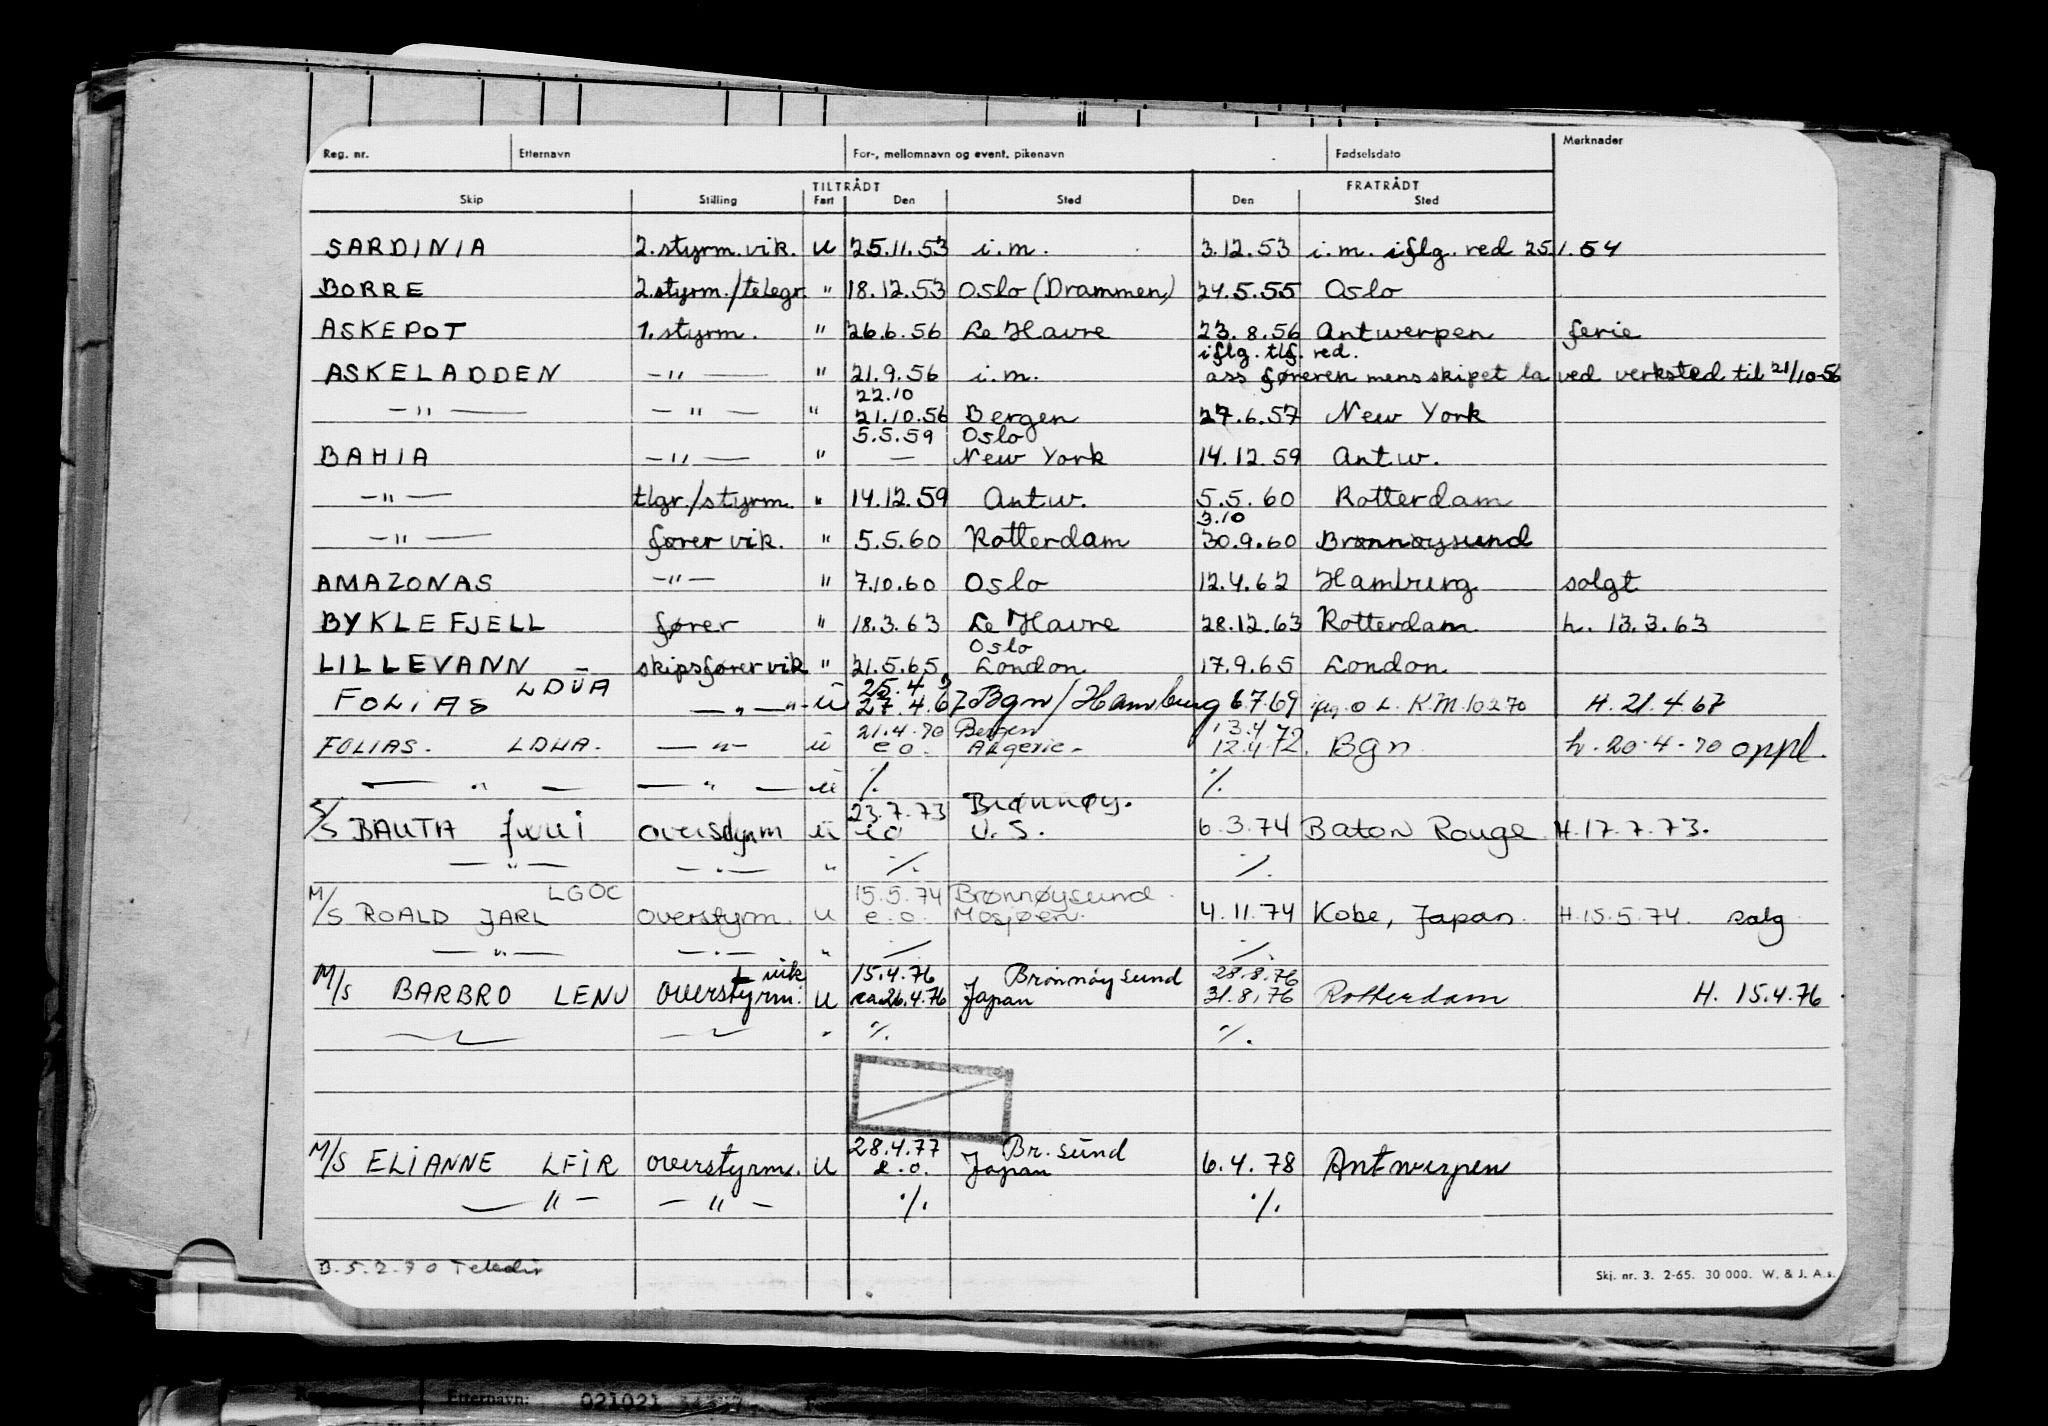 Reg. nr. Etternavn For-, mellomnavn og event. pikenavn Fødselsdato Merknader
TILTRÅDT FRATRÅDT
Skip Stilling Fart Den Sted Den Sted
SARDINIA 2. styrm. vik. u 25.11.53 i.m. 3.12.53 i.m. iflg. red 25.1.54
BORRE 2. styrm./telegr. " 18.12.53 Oslo (Drammen) 24.5.55 Oslo
ASKEPOT 1. styrm. " 26.6.56 Le Havre 23.8.56 Antwerpen ferie
iflg. tlf. red.
ASKELADDEN —"— " 21.9.56 i.m. ass føreren mens skipet la ved verksted til 21/10-56
22.10
—"— —"— " 21.10.56 Bergen 27.6.57 New York
5.5.59 Oslo
BAHIA —"— " — New York 14.12.59 Antw.
—"— tlgr./styrm. " 14.12.59 Antw. 5.5.60 Rotterdam
3.10
—"— fører vik. " 5.5.60 Rotterdam 30.9.60 Brønnøysund
AMAZONAS —"— " 7.10.60 Oslo 12.4.62 Hamburg solgt
BYKLEFJELL fører " 18.3.63 Le Havre 28.12.63 Rotterdam h. 13.3.63
Oslo
LILLEVANN skipsfører vik " 21.5.65 London 17.9.65 London
LDUA 25.4
FOLIAS —"— u 27.4.67 Bgn/Hamburg 6.7.69 iflg. O.L. K.M. 10.2.70 H. 21.4.67
21.4.70 Bergen 13.4
FOLIAS. LDUA. —"— u e.o. Algerie. 12.4.72. Bgn h. 20.4.70 oppl.
—"— —"— u ./. ./.
23.7.73 Brønnøy.
S/S BAUTA JWUI overstyrm u eo U.S. 6.3.74 Baton Rouge H. 17.7.73.
—"— —"— " ./. ./.
LGOC 15.5.74 Brønnøysund.
M/S ROALD JARL overstyrm. u e.o. Mosjøen. 4.11.74 Kobe, Japan. H. 15.5.74 salg
—"— —"— " ./. ./.
vik 15.4.76 Brønnøysund 28.8.76
M/S BARBRO LENU overstyrm. u ca 26.4.76 Japan 31.8.76 Rotterdam H. 15.4.76
—"— —"— " ./. ./.
28.4.77 Br.sund
M/S ELIANNE LFIR overstyrm. u e.o. Japan 6.4.78 Antwerpen
—"— —"— ./. ./.
B. 5.2.70 Teledir
Skj. nr. 3. 2-65. 30 000. W. & J. A.s.
Etternavn: 021021